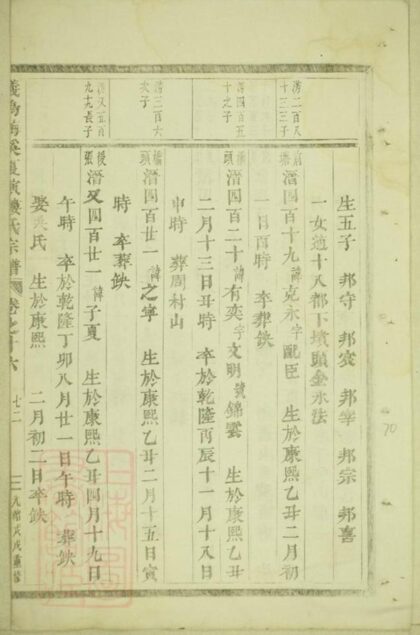 生五子 邦守 邦安 邦宰 邦宗 邦喜
一女適十八都下墳頭金永法
清二百八
十三三子
湣四百十九諱克永字配臣 生於康熙乙丑二月初
一日酉時 卒葬缺
湣四百五
十之子
橋湣四百二十諱有奕字文明號錦雲 生於康熙乙丑
二月十三日丑時 卒於乾隆丙辰十一月十八日
申時 葬周村山
清三百六
次子
橋頭 湣四百廿一諱之寧 生於康熙乙丑二月十五日寅
時 卒葬缺
清又五百
九十九長子
後張 湣又四百廿一諱子夏 生於康熙乙丑四月十九日
午時 卒於乾隆丁卯八月廿一日午時 葬缺
娶 氏 生於康熙 二月初二日卒缺
義烏 溪 演 氏宗譜 卷之十六 七二
70